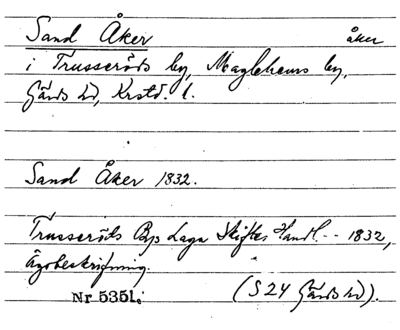 Sand Åker åker
i Trusseröds by, Maglehems by,
Gärds hd, Krstd. l.
Sand Åker 1832.
Trusseröds Bys Laga Skiftes Handl. -- 1832,
Ägobeskrifning.
Nr 5351. (S 24 Gärds hd).